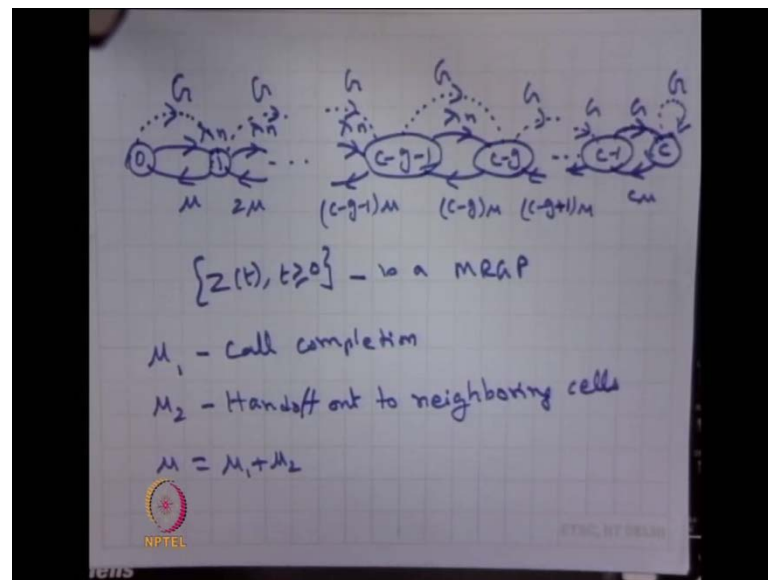 G G G G G G G
λn λn λn λn
0 1 ... c-g-1 c-g ... c-1 c
μ 2μ (c-g-1)μ (c-g)μ (c-g+1)μ cμ
{Z(t), t≥0} - is a MRGP
μ₁ - Call completion
μ₂ - Handoff out to neighboring cells
μ = μ₁+μ₂
NPTEL
ETSC, IIT DELHI